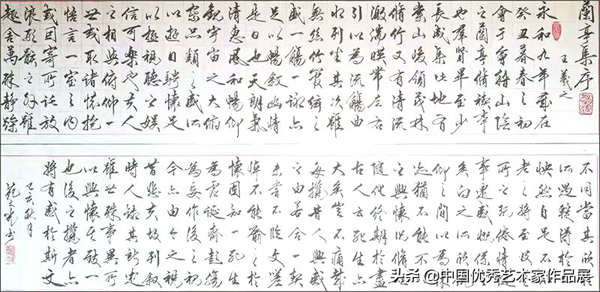 蘭亭集序
王羲之
永和九年歲在
癸丑暮春之初
會于會稽山陰
之蘭亭脩禊事
也群賢畢至少
長咸集此地有
崇山峻領茂林
脩竹又有清流
激湍暎帶左右
引以為流觴曲
水列坐其次雖
無絲竹管絃之
盛一觴一詠亦
足以暢敘幽情
是日也天朗氣
清惠風和暢仰
觀宇宙之大俯
察品類之盛所
以遊目騁懷足
以極視聽之娛
信可樂也夫人
之相與俯仰一
世或取諸懷抱
悟言一室之內
或因寄所託放
浪形骸之外雖
趣舍萬殊靜躁
不同當其欣於
所遇暫得於己
快然自足不知
老之將至及其
所之既倦情隨
事遷感慨係之
矣向之所欣俛
仰之間以為陳
迹猶不能不以
之興懷況脩短
隨化終期於盡
古人云死生亦
大矣豈不痛哉
每攬昔人興感
之由若合一契
未嘗不臨文嗟
悼不能喻之於
懷固知一死生
為虛誕齊彭殤
為妄作後之視
今亦由今之視
昔悲夫故列敘
時人錄其所述
雖世殊事異所
以興懷其致一
也後之攬者亦
將有感於斯文
秋月
头条 @中国优秀艺术家作品展